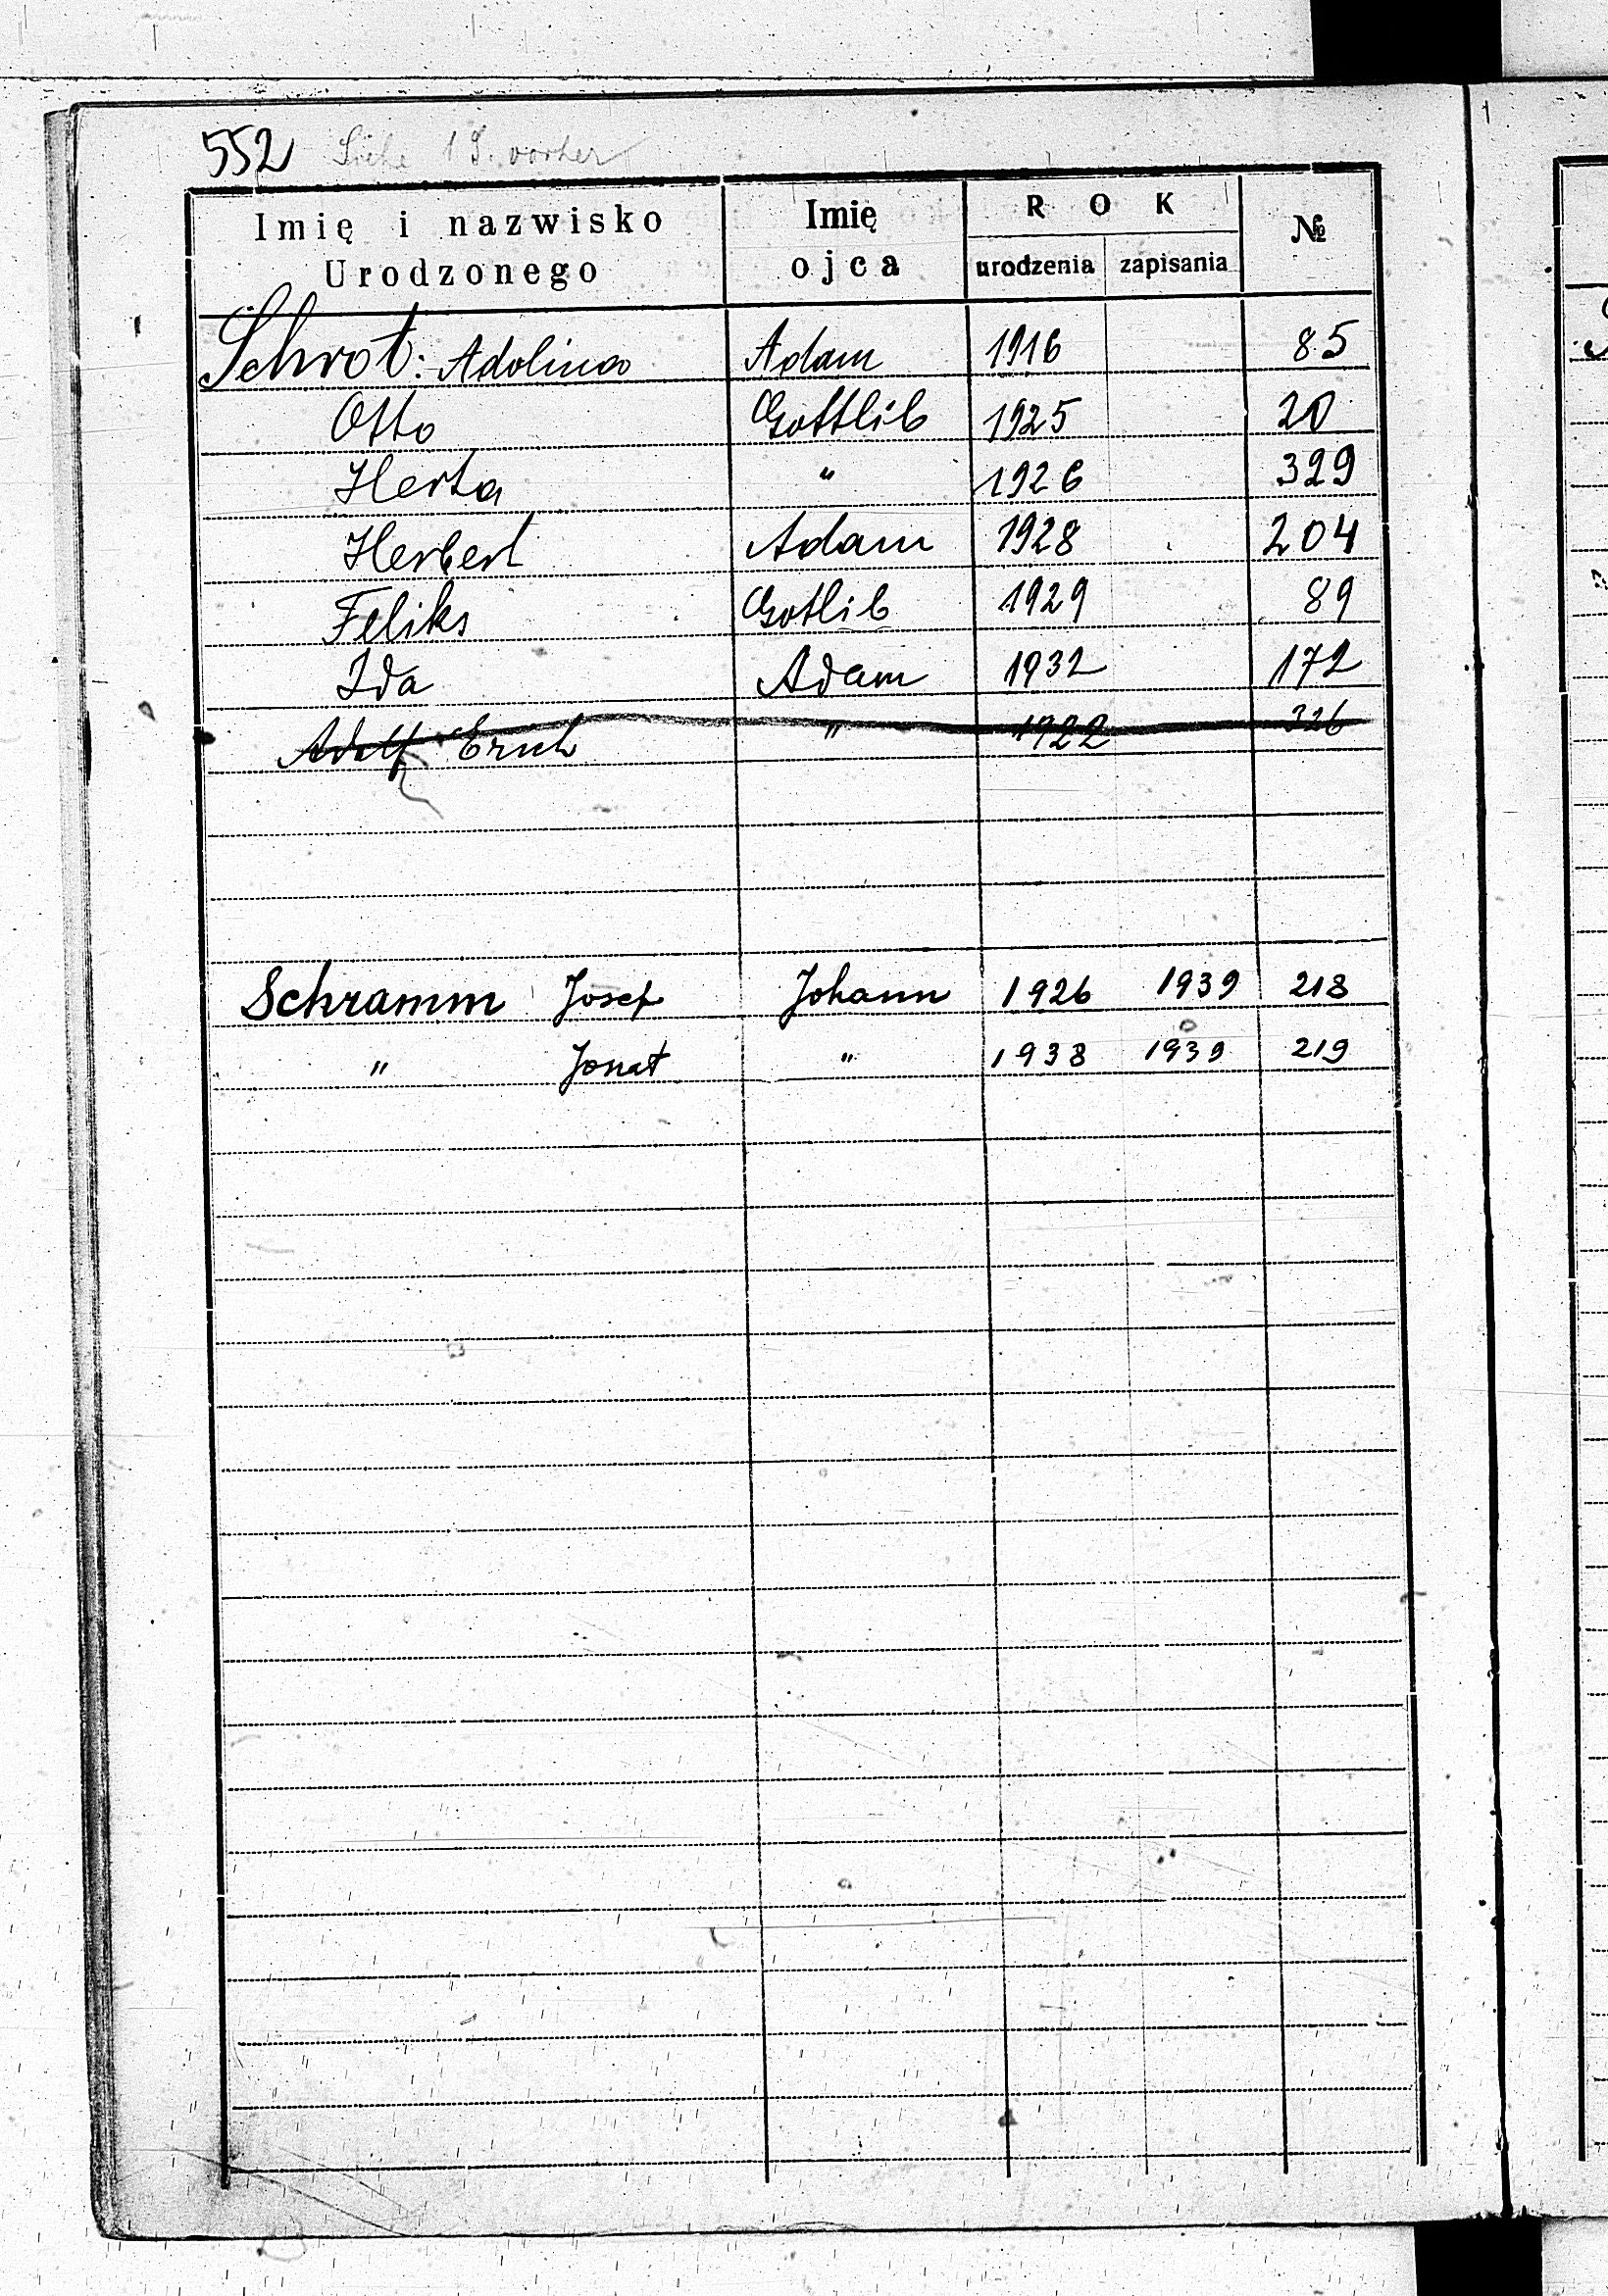 552 Siehe 1 S. vorher
Imię i nazwisko Urodzonego Imię ojca ROK urodzenia zapisania №
Schrot: Adolina Adam 1916 85
Otto Gottlib 1925 20
Herta " 1926 329
Herbert Adam 1928 204
Feliks Gotlib 1929 89
Ida Adam 1932 172
Adolf Erich " 1922 326
Schramm Josef Johann 1926 1939 218
" Jonat " 1938 1939 219